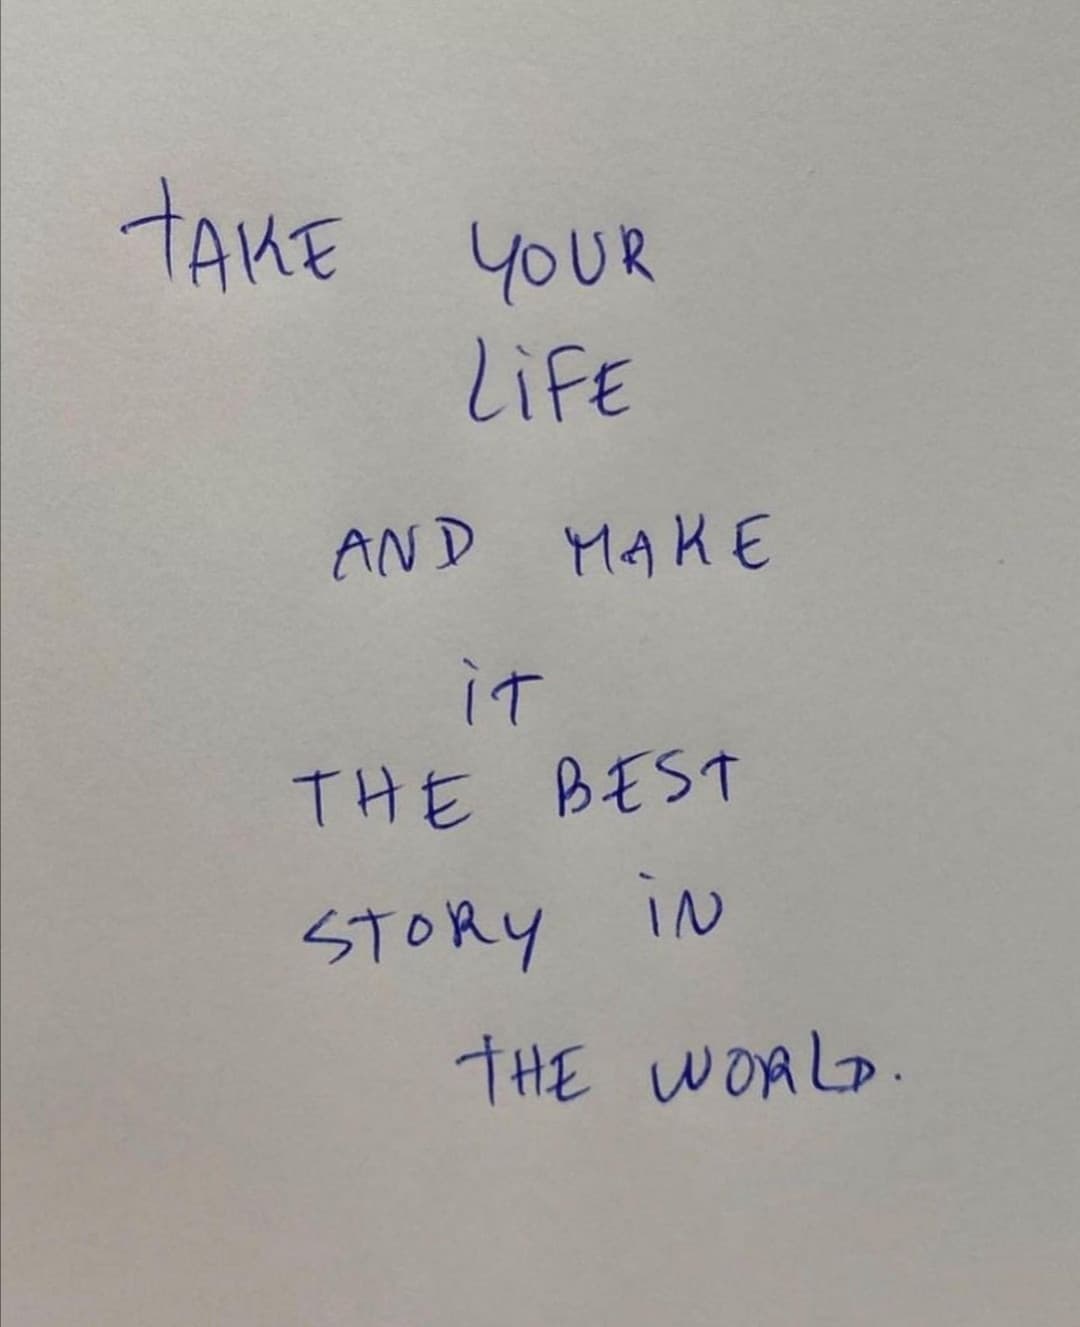 tAKE YOUR
LiFE
AND MAKE
iT
THE BEST
STORY iN
tHE WORLD.